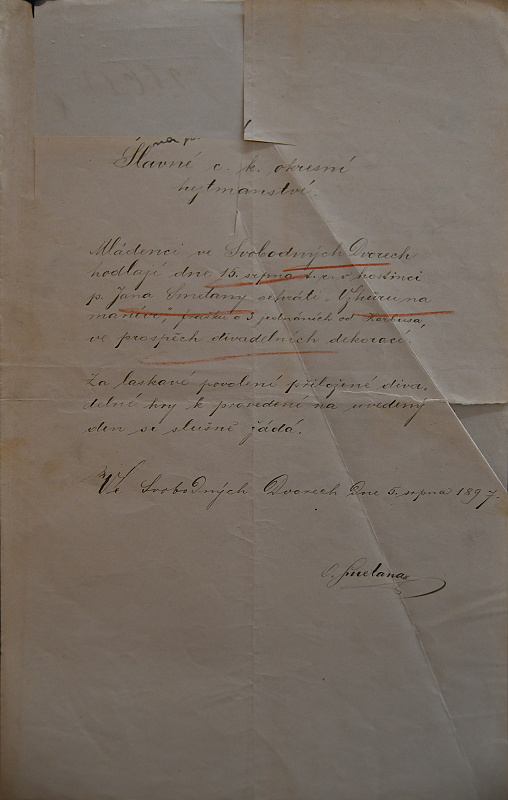 Slavné c. k. okresní
hejtmanství.
Mládenci ve Svobodných Dvorech
hodlají dne 15. srpna t. r. v hostinci
p. Jana Smetany sehráti „Vzhůru na
manévr", frašku o 3 jednáních od
ve prospěch divadelních dekorací.
Za laskavé povolení přiložené diva-
delné hry k provedení na uvedený
den se slušně žádá.
Ve Svobodných Dvorech dne 5. srpna 1897.
Smetana